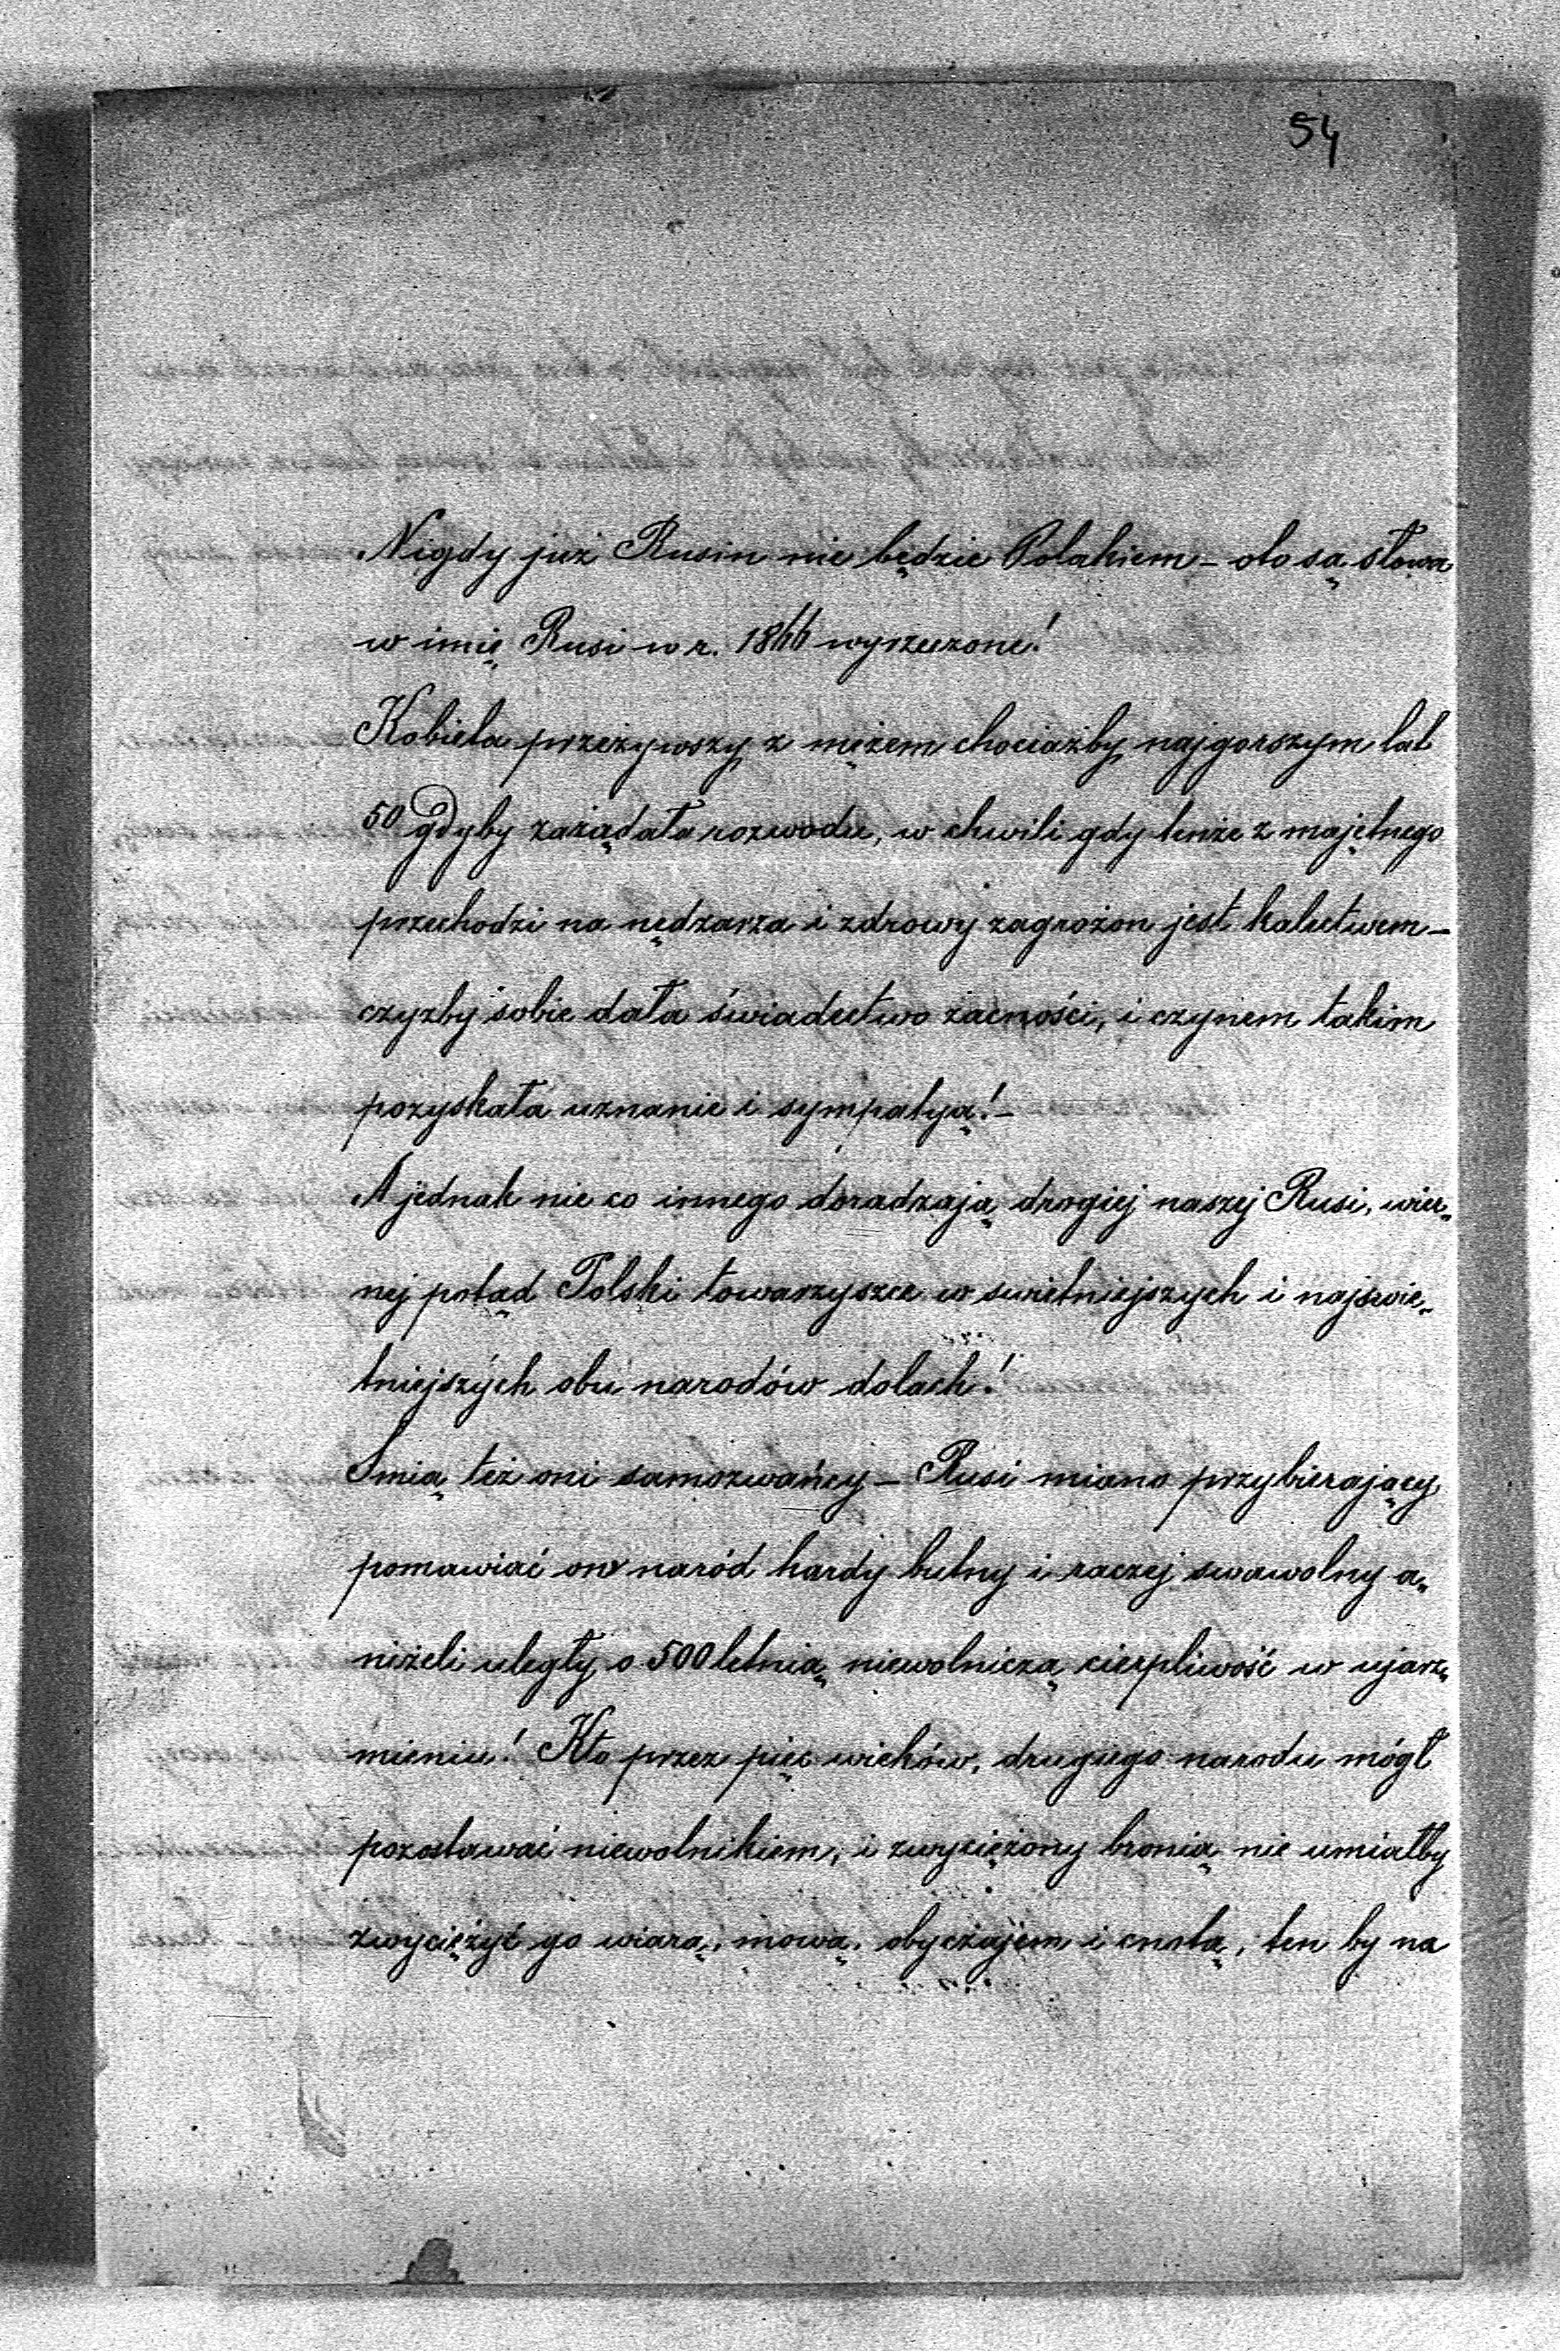 54
Nigdy już Rusin nie będzie Polakiem – oto są słowa
w imię Rusi w r. 1866 wyrzeczone!
Kobieta przeżywszy z mężem chociażby najgorszym lat
50 gdyby zażądała rozwodu, w chwili gdy tenże z majętnego
przechodzi na nędzarza i zdrowy zagrożon jest kalectwem –
czyżby sobie dała świadectwo zacności, i czynem takim
pozyskała uznanie i sympatyą! –
A jednak nie co innego doradzają drogiej naszej Rusi, wier„
nej potąd Polski towarzyszce w swietniejszych i najswie„
tniejszych obu narodów dolach!
Smią też oni samozwańcy – Rusi miano przybierający
pomawiać on naród hardy butny i raczej swawolny a„
niżeli uległy o 500 letnią niewolniczą cierpliwość w ujarz„
mieniu! Kto przez pięc wieków, drugiego narodu mógł
pozostawać niewolnikiem, i zwyciężony bronią nie umiałby
zwyciężyć go wiarą, mową, obyczajem i cnotą, ten by na